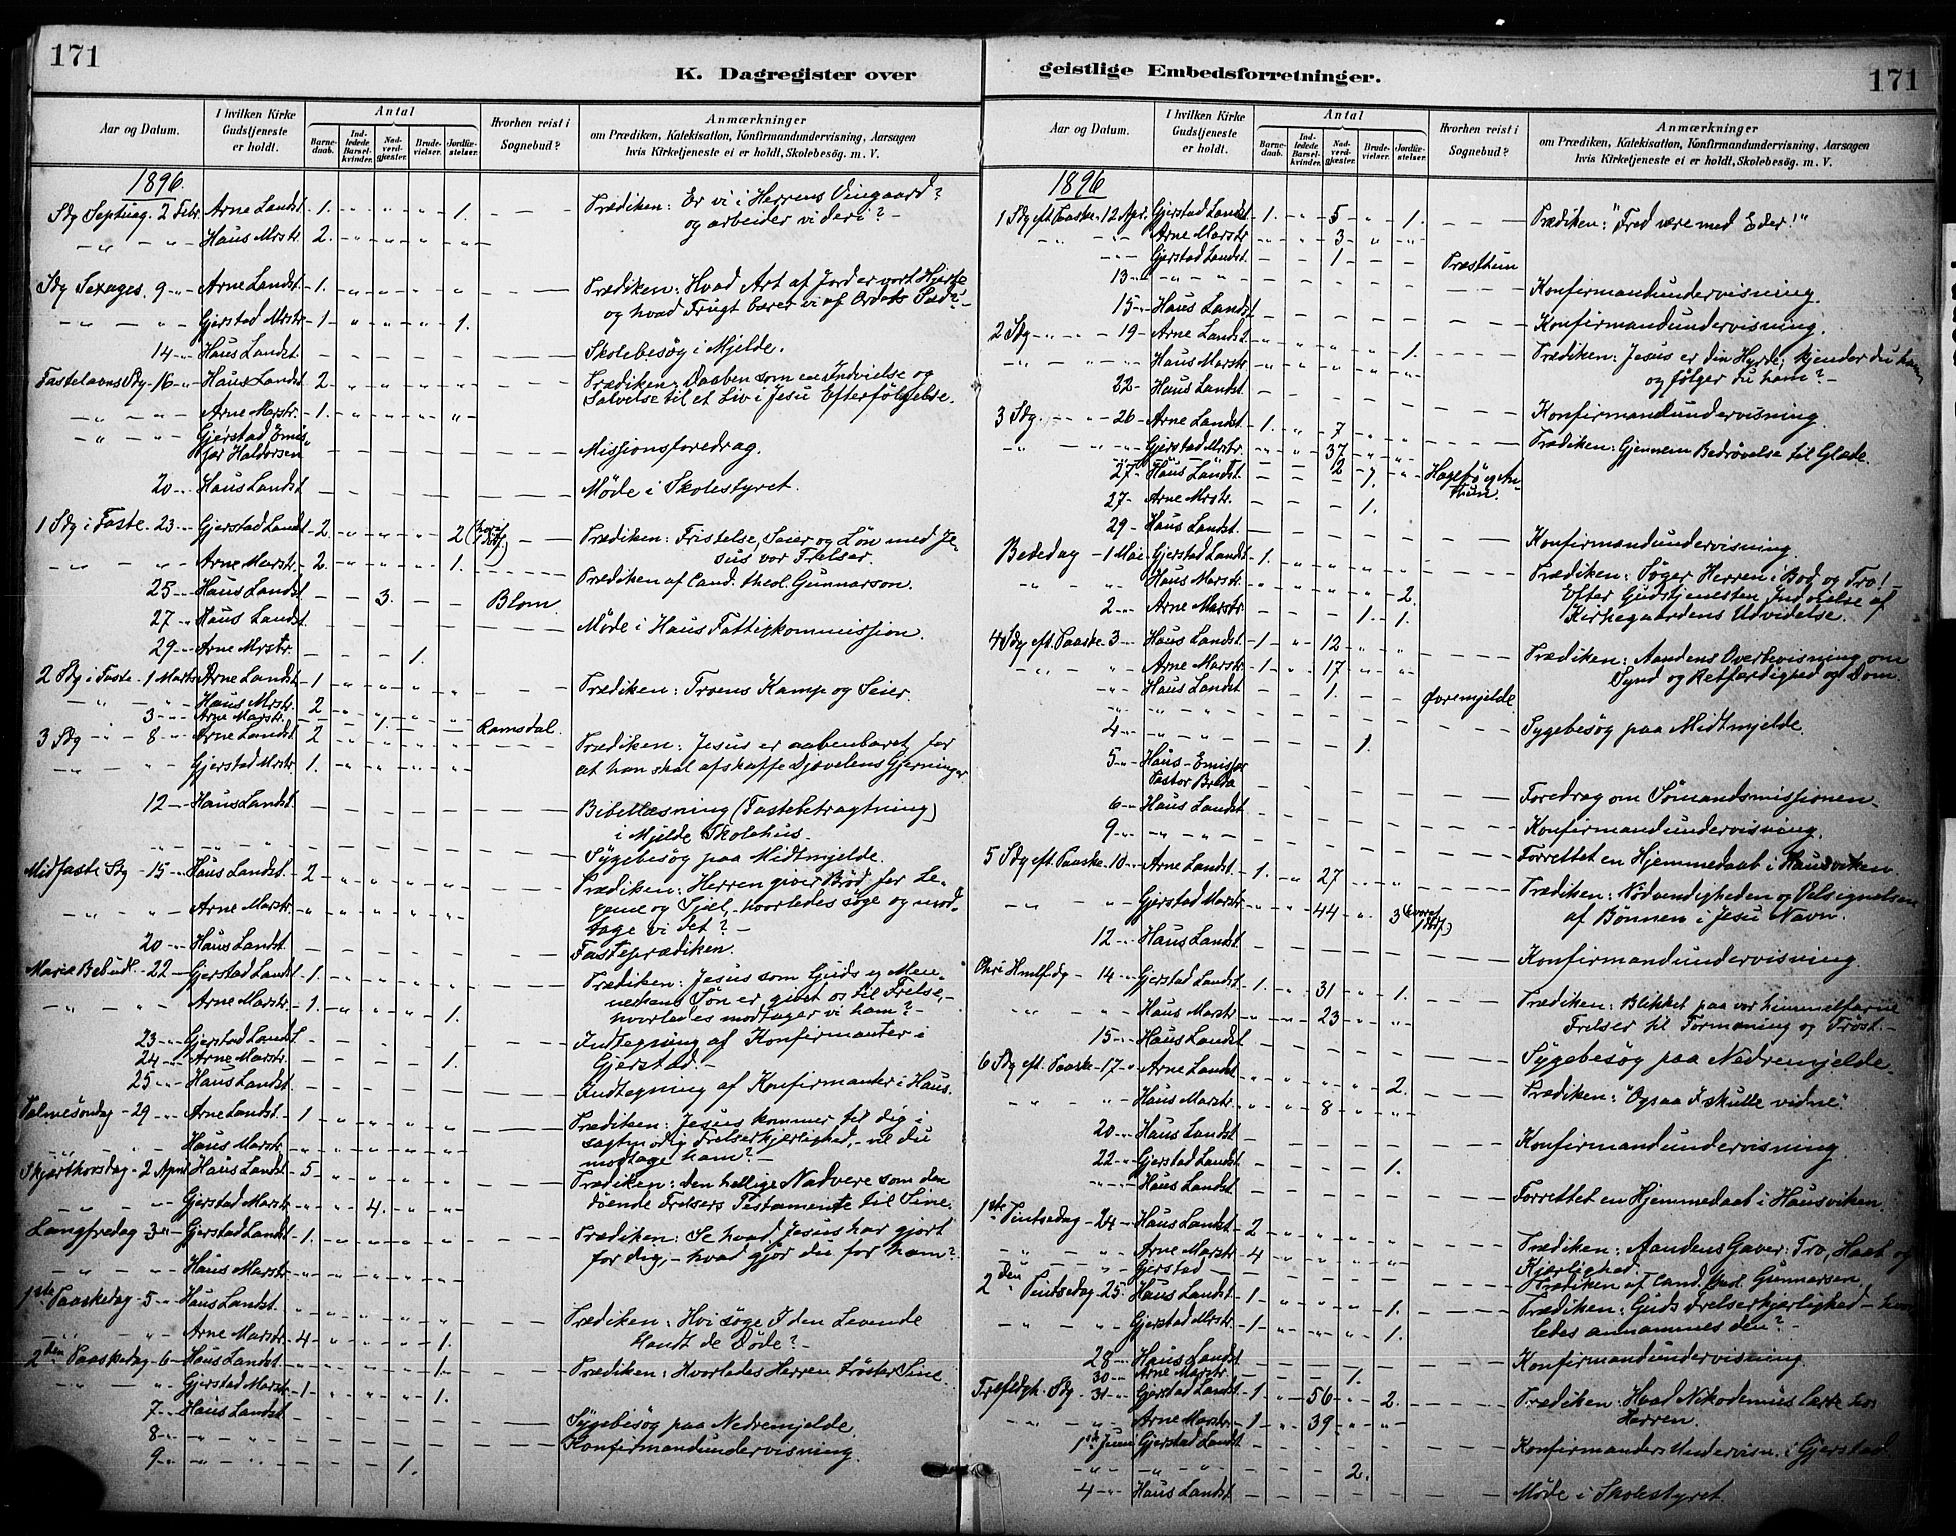 171
K. Dagregister over
Aar og Datum.
I hvilken Kirke Gudstjeneste er holdt.
Antal
Barnedaab.
Indledede Barselkvinder.
Nadverdgjester.
Brudevielser.
Jordfæstelser.
Hvorhen reist i Sognebud?
Anmærkninger
om Prædiken, Katekisation, Konfirmandundervisning, Aarsagen
hvis Kirketjeneste ei er holdt, Skolebesög. m. V.
1896.
Sdg Septuag. 2 Febr. Arne Landst. 1. 1. Prædiken: Er vi i Herrens Vingaard?
og arbeider vi deri? -
Haus Mrstr. 2.
Sdg Sexages. 9 Arne Landst. 1. Prædiken: Hvad Art af Jord er vort Hjerte
og hvad Frugt bærer vi af Ordets Sæd? -
Gjerstad Mrstr. 1. 1.
14 Haus Landst. Skolebesøg i Mjelde.
Fastelavns Sdg 16 Haus Landst. 2. Prædiken, Daaben som en Indvielse og
Salvelse til et Liv i Jesu Efterfølgelse.
Arne Marstr. 1.
Gjerstad Emis-
sær Haldorsen Missionsforedrag.
20 Haus Landst. Møde i Skolestyret.
1 Sdg i Faste 23 Gjerstad Landst. 2. 2 Prædiken: Fristelse, Seier og Løn med Je-
sus vor Frelser.
Arne Marstr. 2. 1. Prædiken af Cand. theol. Gunnarson.
25 Haus Landst. 3. Blom.
27 Haus Landst. Møde i Haus Fattigkommission.
29 Arne Mrstr. 1.
2 Sdg i Faste 1 Marts Arne Landst. 1 Prædiken: Troens Kamp og Seier.
Haus Mrstr. 2
3 Arne Marstr. 1. Ramsdal.
3 Sdg 8 Arne Landst. 2 Prædiken: Jesus er aabenbaret for
at han skal afskaffe Djævelens Gjerninger.
Gjerstad Mrstr. 1.
12 Haus Landst. Bibellæsning (Fastebetragtning)
i Mjelde Skolehus.
Sygebesøg paa Midtmjelde.
Midfaste Sdg 15 Haus Landst. 2 Prædiken: Herren giver Brød for Le-
geme og Sjæl, - hvorledes søge og mod-
tage vi det? -
Arne Marstr.
20 Haus Landst. Fasteprædiken.
Mariæ Bebud. 22 Gjerstad Landst. 1. Prædiken: Jesus som Guds og Men-
neskens Søn er givet os til Frelse, -
hvorledes modtager vi ham? -
Arne Marstr. 1. 1.
23 Gjerstad Landst. Indtegning af Konfirmanter i
Gjerstad. -
24 Arne Marstr. 1.
25 Haus Landst. Indtegning af Konfirmanter i Haus.
Palmesøndag 29 Arne Landst. 1 Prædiken: Jesus kommer til dig i
sagtmodig Frelserkjerlighed, - vil du
modtage ham? -
Haus Marstr.
Skjærthorsdag 2 April Haus Landst. 5 Prædiken: den hellige Nadvere som den
døende Frelsers Testamente til Sine.
Gjerstad Marstr. 4.
Langfredag 3 Gjerstad Landst. 1. Prædiken: Se hvad Jesus har gjort
for dig, - hvad gjør du for ham?
Haus Marstr.
1ste Paaskedag 5 Haus Landst. Prædiken: Hvi søge I den Levende
blandt de Døde? -
Arne Marstr. 4 1.
2den Paaskedag 6 Haus Landst. 1. Prædiken: Hvorledes Herren trøster Sine.
Gjerstad Marstr. 1 1.
7 Haus Landst. Sygebesøg paa Nedremjelde.
8 Konfirmandundervisning.
9 1.
geistlige Embedsforretninger.
171
Aar og Datum.
I hvilken Kirke Gudstjeneste er holdt.
Antal
Barnedaab.
Indledede Barselkvinder.
Nadverdgjester.
Brudevielser.
Jordfæstelser.
Hvorhen reist i Sognebud?
Anmærkninger
om Prædiken, Katekisation, Konfirmandundervisning, Aarsagen
hvis Kirketjeneste ei er holdt, Skolebesög. m. V.
1896
1 Sdg eft. Paaske 12 Apr. Gjerstad Landst. 1. 5 1. Prædiken: "Fred være med Eder!"
Arne Marstr. 3
Gjerstad Landst. 1 Præsthun
13 Konfirmandundervisning.
15 Haus Landst. Konfirmandundervisning.
2 Sdg 19 Arne Landst. 1. Prædiken: Jesus er din Hyrde; kjender du ham
og følger du ham? -
Haus Marstr.
22 Haus Landst. Konfirmandundervisning.
3 Sdg. 26 Arne Landst. 1. 7 Prædiken: Gjennem Bedrøvelse til Glæde.
Gjerstad Mrstr. 37
27 Haus Landst. 2
27 Arne Mrstr. 1.
29 Haus Landst. Konfirmandundervisning.
Bededag 1 Mai Gjerstad Landst. 1. Prædiken: Søger Herren i Bod og Tro! -
Efter Gudstjenesten Indvielse af
Kirkegaardens Udvidelse.
Haus Marstr. 2.
2 Arne Marstr. 1. 1.
4 Sdg eft. Paaske 3 Haus Landst. 1 12 Prædiken: Aandens Overbevisning om
Synd og Retfærdighed og Dom.
Arne Marstr. 1 17
Haus Landst. 1. Øvremjelde.
Sygebesøg paa Midtmjelde.
4 1.
5 Haus - Emissær
Pastor Foredrag om Sømandsmissionen.
6 Haus Landst. Konfirmandundervisning.
9 Forrettet en Hjemmedaab i Hausviken.
5 Sdg eft. Paaske 10 Arne Landst. 1. 27 Prædiken: Nødvendigheden og Velsignelsen
af Bønnen i Jesu Navn.
Gjerstad Marstr. 44 3
12 Haus Landst. Konfirmandundervisning.
Chri Hmlfdg 14 Gjerstad Landst. 1. 31 1. Prædiken: Blikket paa vor himmelfarne
Frelser til Formaning og Trøst.
Haus Marstr. 23
15 Haus Landst. Sygebesøg paa Nedremjelde.
6 Sdg eft. Paaske 17 Arne Landst. 2. Prædiken: "Ogsaa I skulle vidne."
Haus Marstr. 8
20 Haus Landst. Konfirmandundervisning.
22 Gjerstad Landst. 1.
Haus Landst. Forrettet en Hjemmedaab i Hausviken.
1ste Pintsedag 24 Haus Landst. 2 Prædiken: Aandens Gaver: Tro, Haab og
Kjærlighed.
Arne Marstr. 4
Gjerstad Prædiken af Cand. theol. Gunnarsen.
2den Pintsedag 25 Haus Landst. 1 1. Prædiken: Guds Frelserkjærlighed - hvor-
ledes annammes den? -
Gjerstad Mrstr. 1 1.
28 Haus Landst. Konfirmandundervisning.
30 Arne Marstr. 1.
Trefdgh. Sdg 31 Gjerstad Landst. 1 56 2. Prædiken: Hvad Nikodemus lærte hos
Herren.
Arne Marstr. 1 39
1ste Juni Gjerstad Landst. Konfirmanders Undervisn. i Gjerstad.
2.
4 Haus Landst. Møde i Skolestyret.